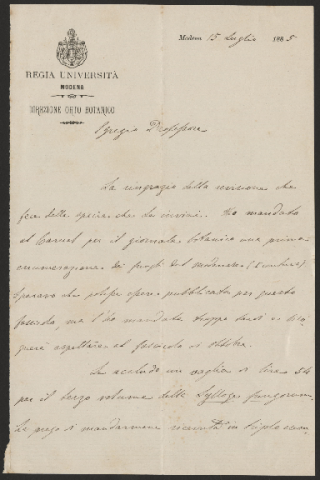 Modena 15 Luglio 1885
REGIA UNIVERSITÀ
MODENA
DIREZIONE ORTO BOTANICO
Egregio Professore
La ringrazio della revisione che
fece delle specie che le inviai. Ho mandata
al Caruel per il giornale botanico una prima
enumerazione dei funghi del modenese
Speravo che potesse essere pubblicata per questo
fascicolo, ma l'ho mandata troppo tardi e
aspettare al fascicolo di Ottobre.
Le accludo un vaglia di lire 54
per il terzo volume della Sylloge fungorum.
La prego di mandarmene ricevuta in